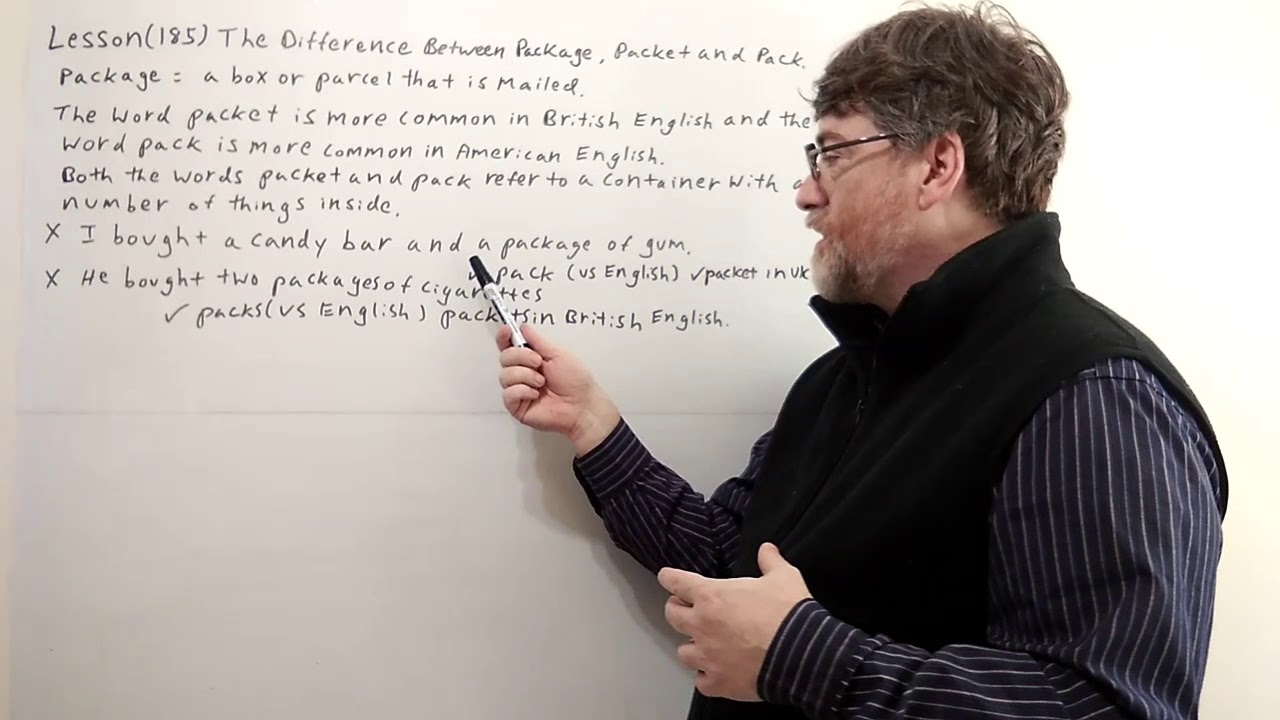 Lesson(185) The Difference Between Package, Packet and Pack.
Package = a box or parcel that is Mailed.
The Word packet is more common in British English and the
Word pack is more common in American English.
Both the words packet and pack refer to a container with a
number of things inside.
X I bought a candy bar and a package of gum.
✓ pack (US English) ✓packet in UK
X He bought two packages of cigarettes
✓ packs(US English) packets in British English.